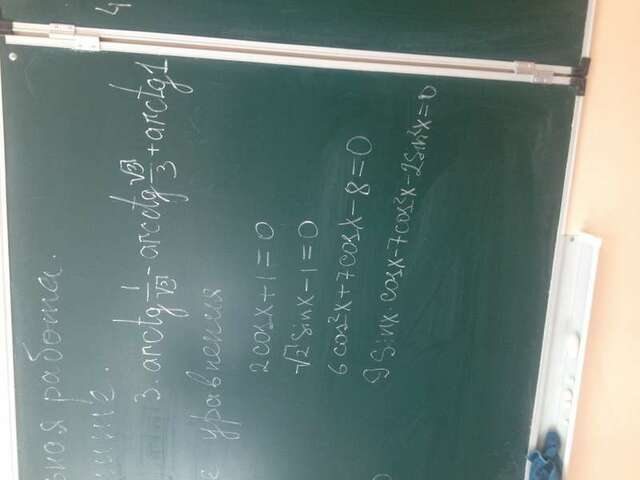 ьная работа.
3. arctg 1/√3 - arcctg √3/3 + arctg1
е уравнения
2cosx+1=0
√2 sinx-1=0
6cos²x+7cosx-8=0
9sinx·cosx-7cos²x-2sin²x=0
4